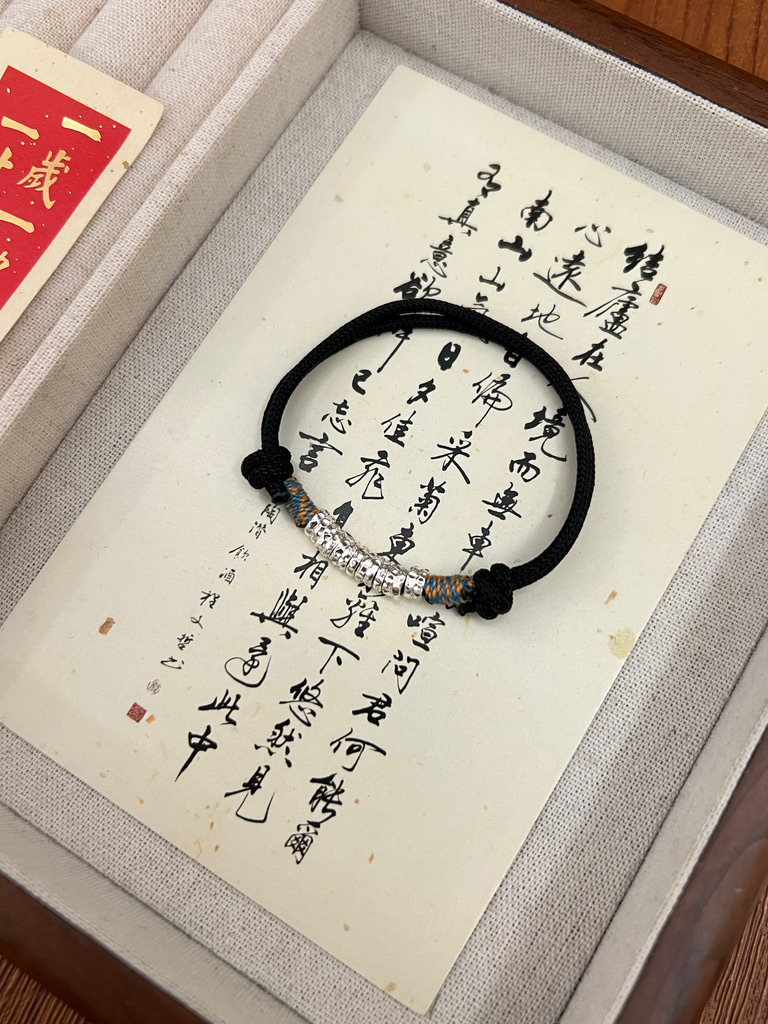 結廬在人境而無車喧問君何能爾
心遠地自偏采菊東籬下悠然見
南山山氣日夕佳飛相與還此中
有真意欲辨已忘言
陶潛飲酒程文哲书
一歲一
一